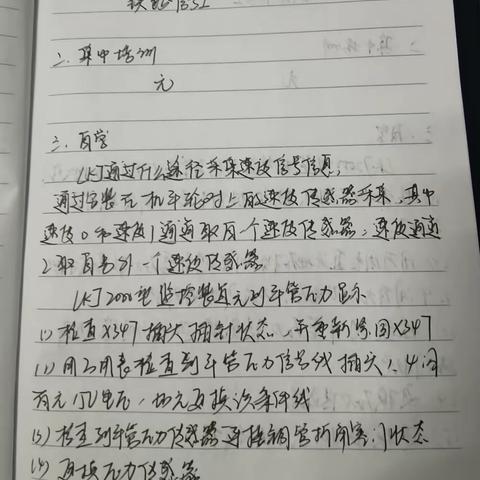 二.集中培训
无
三.自学
LKJ通过什么途径采集速度信号信息,
通过安装在机车轮对上的速度传感器采集,其中
速度0和速度1通道取自一个速度传感器,速度通道
2取自另外一个速度传感器
LKJ2000型监控装置无列车管压力显示
(1)检查X347插头插针状态,并重新紧固X347
(2)用万用表检查列车管压力信号线插头1、4间
有无15V电压,如无更换该条件线
(3)检查列车管压力传感器连接铜管折角塞门状态
(4)更换压力传感器